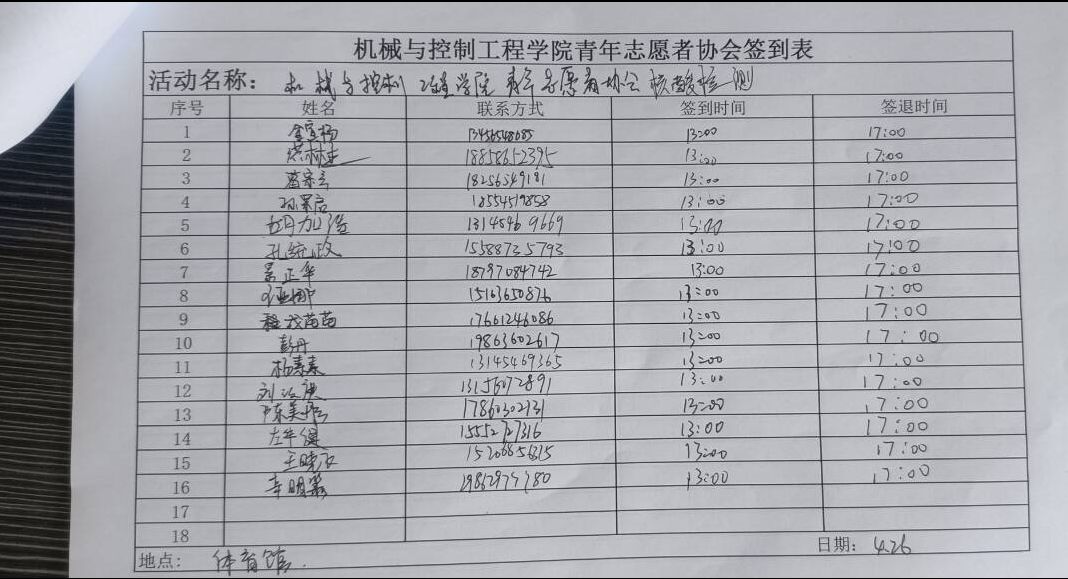 机械与控制工程学院青年志愿者协会签到表
活动名称: 机械与控制工程学院青年志愿者协会核酸检测
序号 姓名 联系方式 签到时间 签退时间
1 13:00 17:00
2 18858652395 13:00 17:00
3 18256549181 13:00 17:00
4 18554519858 13:00 17:00
5 18145469669 13:00 17:00
6 孔统政 15588735793 13:00 17:00
7 景正华 18797084742 13:00 17:00
8 15163650876 13:00 17:00
9 程茂苗苗 17661246086 13:00 17:00
10 彭丹 19863602617 13:00 17:00
11 杨素素 13145469365 13:00 17:00
12 13156072891 13:00 17:00
13 17860302131 13:00 17:00
14 15552727316 13:00 17:00
15 王晓 15206656315 13:00 17:00
16 李明 13:00 17:00
17
18
地点: 体育馆. 日期: 4.26